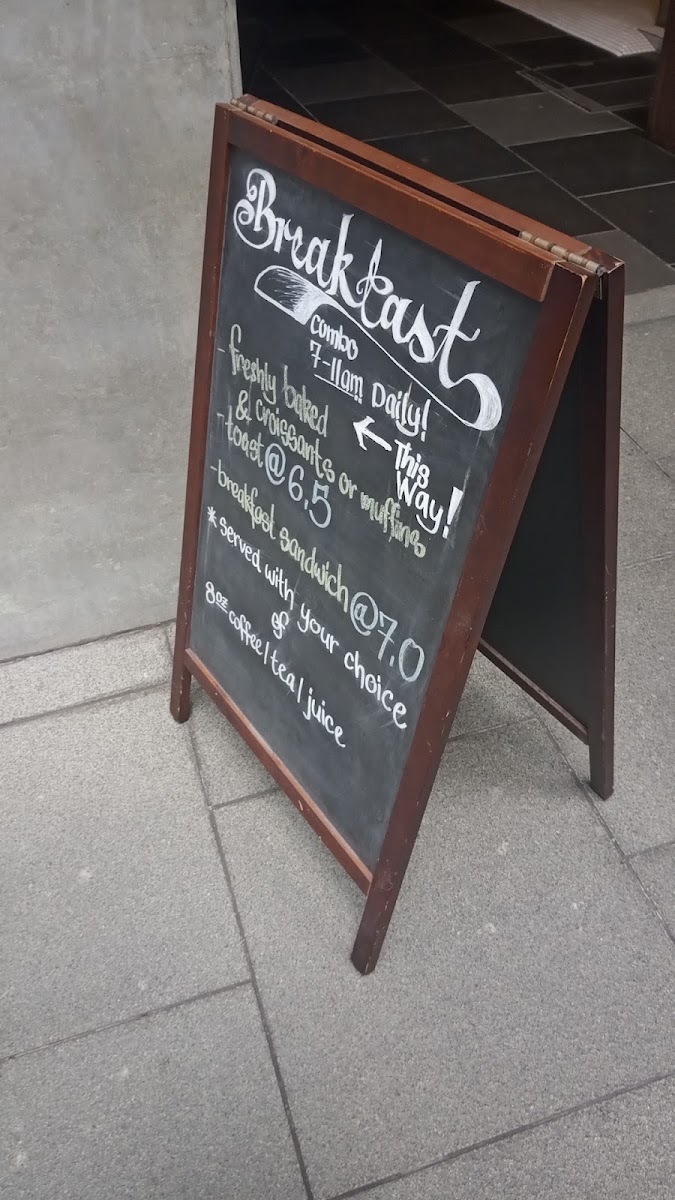 Breakfast
combo
7-11am Daily!
← This Way!
- freshly baked
& croissants or muffins
- toast @ 6.5
- breakfast sandwich @ 7.0
* served with your choice
of
8oz coffee / tea / juice